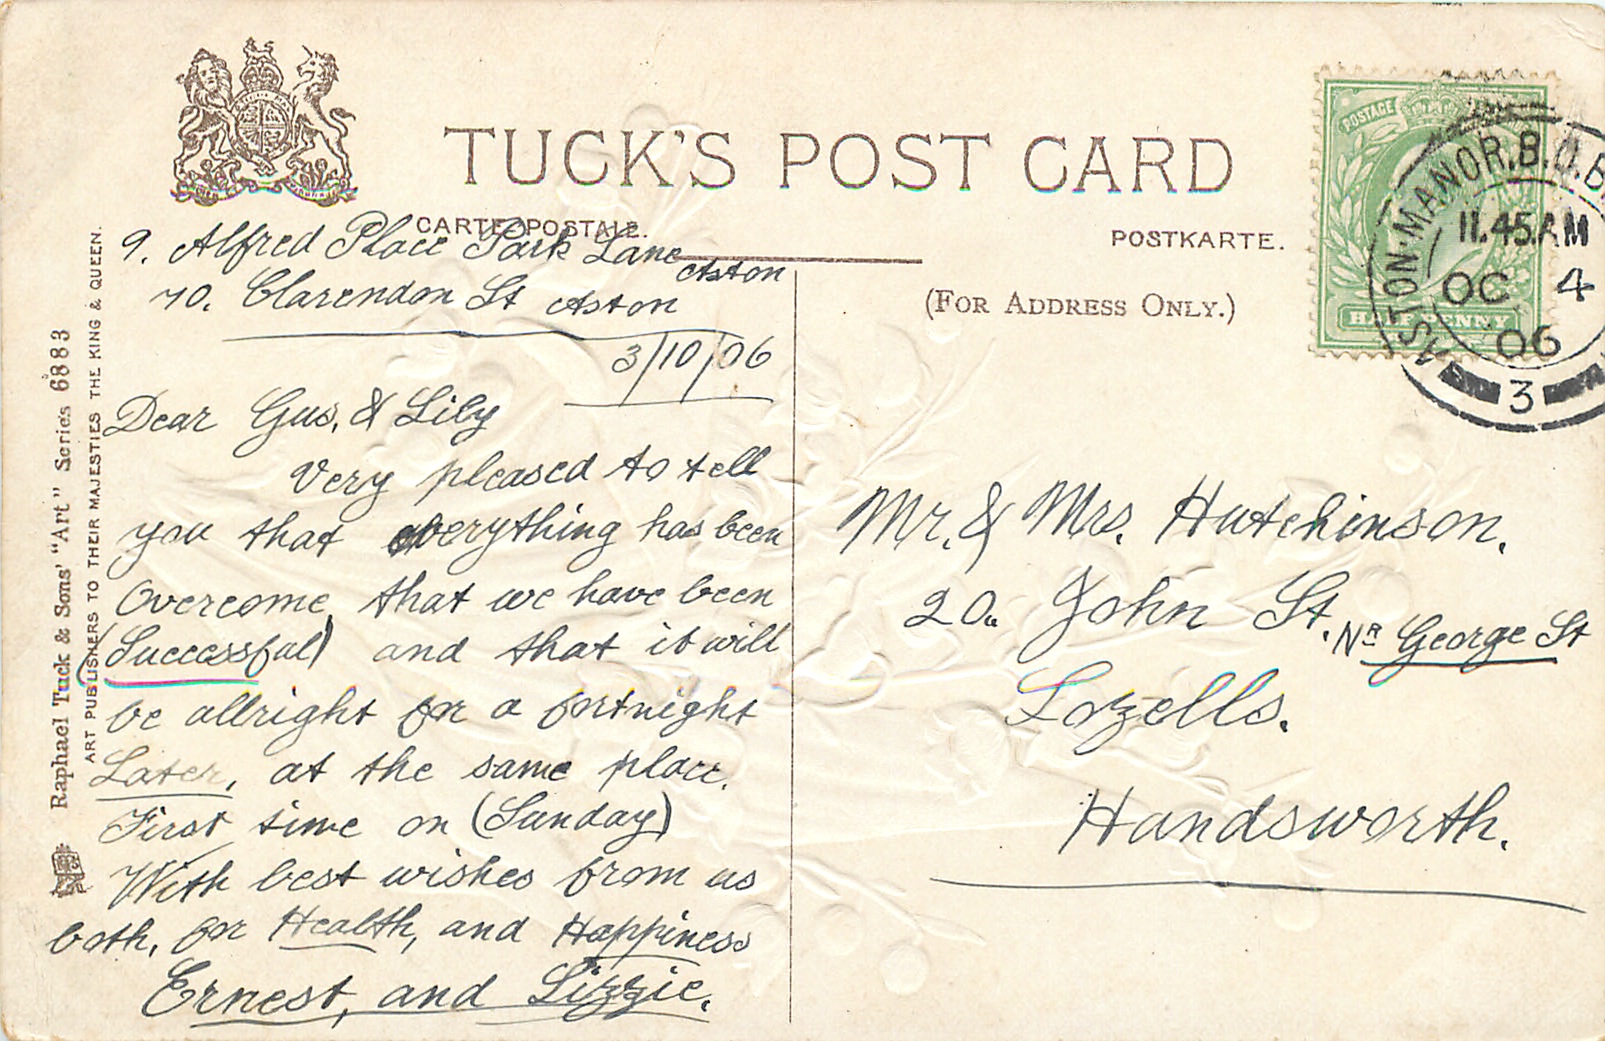 TUCK'S POST CARD
CARTE POSTALE.
POSTKARTE.
(FOR ADDRESS ONLY.)
POSTAGE
HALFPENNY
ASTON MANOR.B.O.B
11.45.AM
OC 4
06
3
Raphael Tuck & Sons' "Art" Series 6883
ART PUBLISHERS TO THEIR MAJESTIES THE KING & QUEEN.
9. Alfred Place Park Lane Aston
70. Clarendon St Aston
3/10/06
Dear Gus, & Lily
Very pleased to tell
you that everything has been
Overcome that we have been
(Successful) and that it will
be allright for a fortnight
Later, at the same place.
First time on (Sunday)
With best wishes from us
both, for Health, and Happiness
Ernest, and Lizzie.
Mr. & Mrs. Hutchinson.
20. John St. Nr George St
Lozells.
Handsworth.